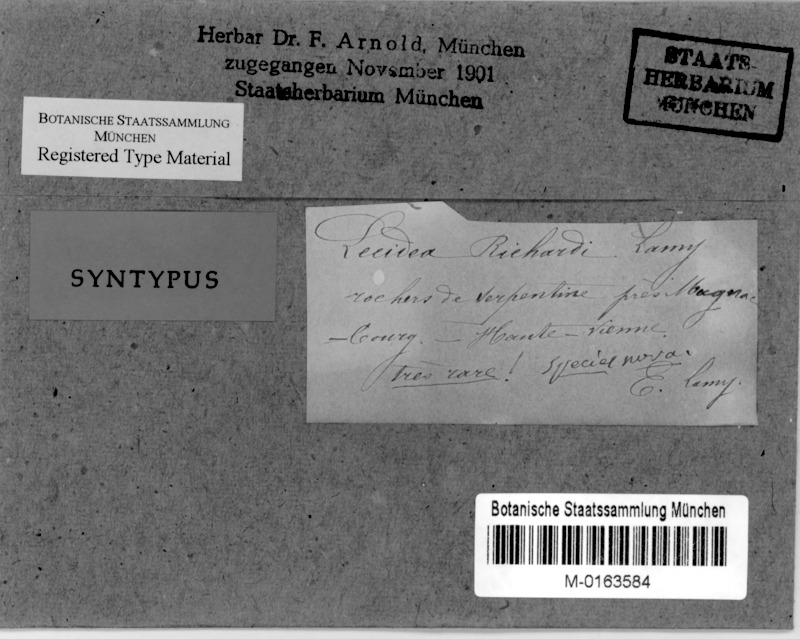 Herbar Dr. F. Arnold, München
zugegangen November 1901
Staatsherbarium München
STAATS-
HERBARIUM
MÜNCHEN
BOTANISCHE STAATSSAMMLUNG
MÜNCHEN
Registered Type Material
SYNTYPUS
Lecidea Richardi Lamy
rochers de serpentine près Magnac
-Bourg. - Haute-Vienne.
très rare! species nova.
E. Lamy.
Botanische Staatssammlung München
M-0163584